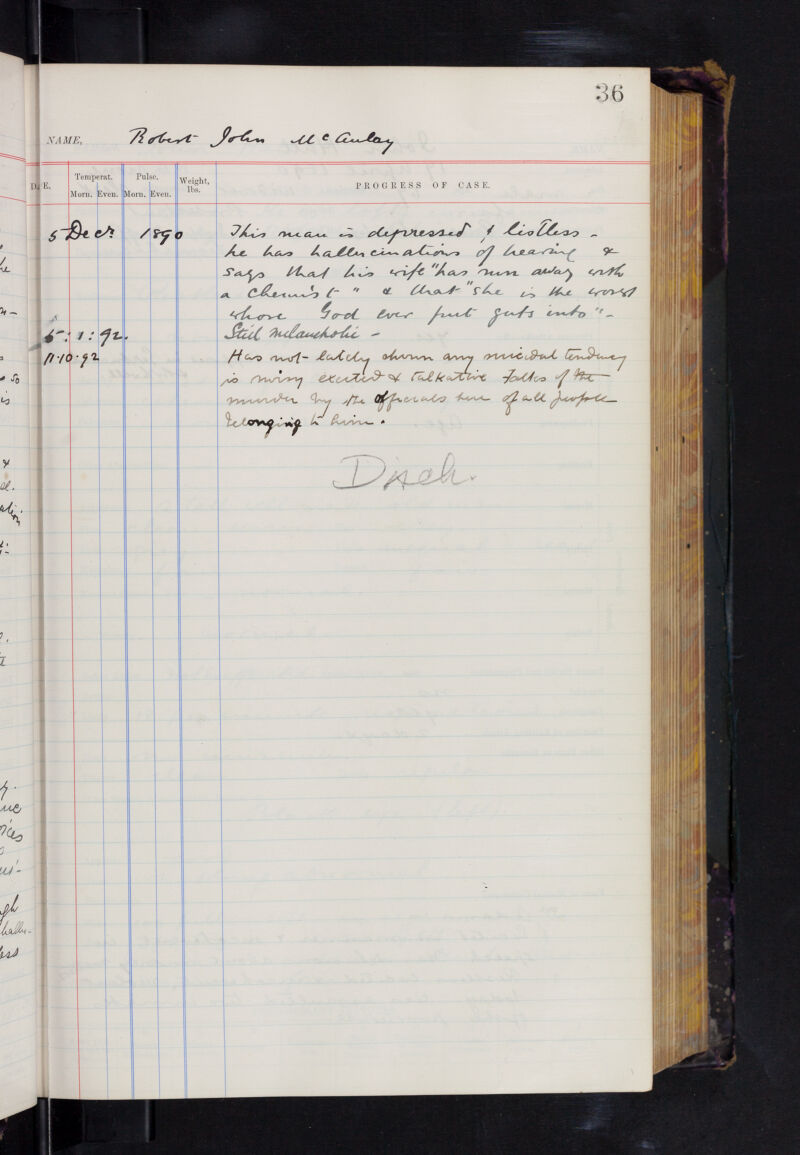 36
NAME, Robert John McAulay
DATE, Temperat. Morn. Even. Pulse. Morn. Even. Weight, lbs. PROGRESS OF CASE.
5 Decr 1890 This man is depressed & listless -
he has hallucinations of hearing &
says that his wife "has run away with
a Chemist" & that "she is the worst
whore God ever put guts into" -
5:1:92. Still melancholic -
11.10.92 Has not lately shown any suicidal tendency
is noisy excited & talkative talks of the
murder by the officials here of all people
belonging to him.
Disch.